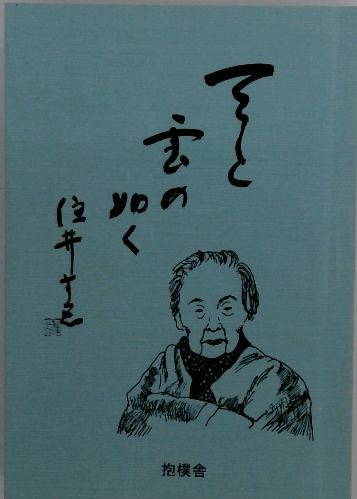 雲の
如く
住井すゑ
抱樸舎